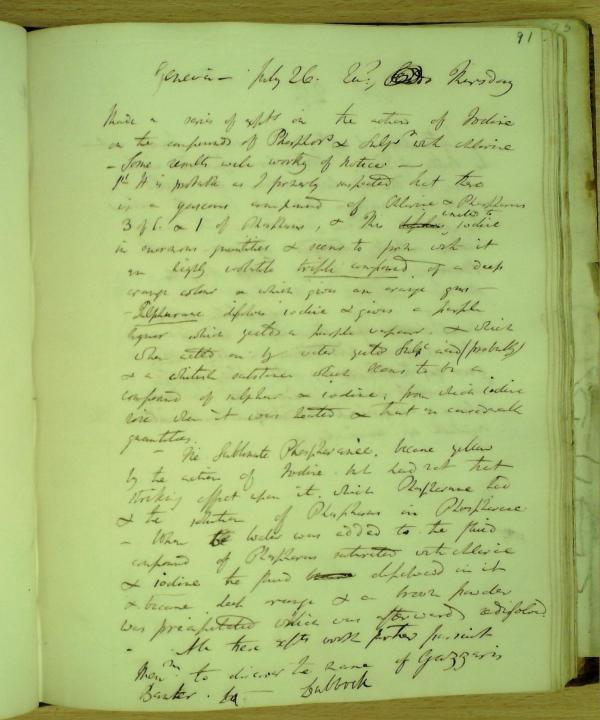 91
Geneva – July 26. Thursday
Made a series of expts on the action of Iodine
on the compounds of Phosphors & Sulpr with chlorine
– Some results were worthy of notice –
1st It is probable as I formerly suspected that there
is a gaseous compound of Chlorine & Phosphorus
3 of C. & 1 of Phosphorus, & this united to iodine
in enormous quantities & seems to form with it
an highly volatile triple compound of a deep
orange colour & which gives an orange gas –
– Sulphurane dissolves iodine & gives a purple
liquor which yields a purple vapour. & which
when acted on by water yields Sulpc acid (probably)
& a whitish substance which seems to be a
compound of sulphur & iodine; from which iodine
rose when it was heated & that in considerable
quantities.
– The Sublimate Phosphoranee. became yellow
by the action of Iodine. but had not that
striking effect upon it. which Phosphorane had
& the solution of Phosphorus in Phosphorane
– When water was added to the fluid
compound of Phosphorus saturated with chlorine
& iodine the fluid dissolved in it
& became dark orange & a brown powder
was precipitated which was afterwards redissolved.
– All these expts worth further pursuit
Memm to discover the name of Gazzaris
Banker.